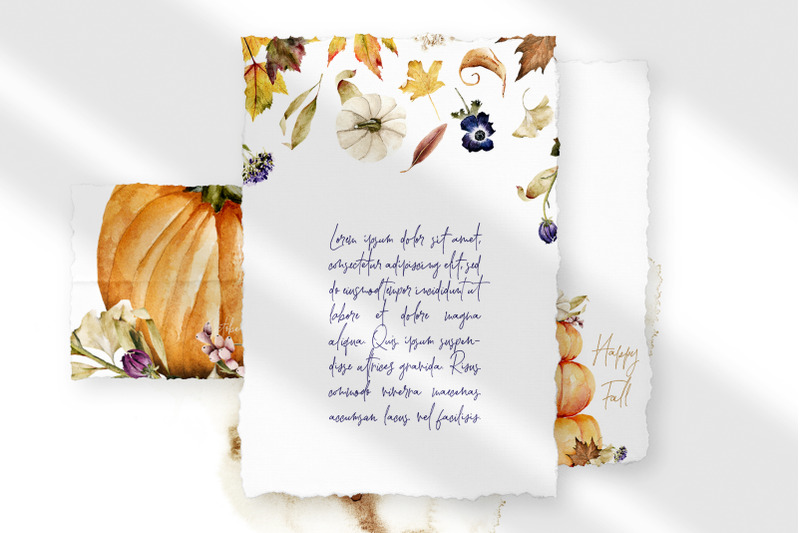 Lorem ipsum dolor sit amet,
consectetur adipiscing elit, sed
do eiusmod tempor incididunt ut
labore et dolore magna
aliqua. Quis ipsum suspen-
disse ultrices gravida. Risus
commodo viverra maecenas
accumsan lacus vel facilisis
Happy
Fall